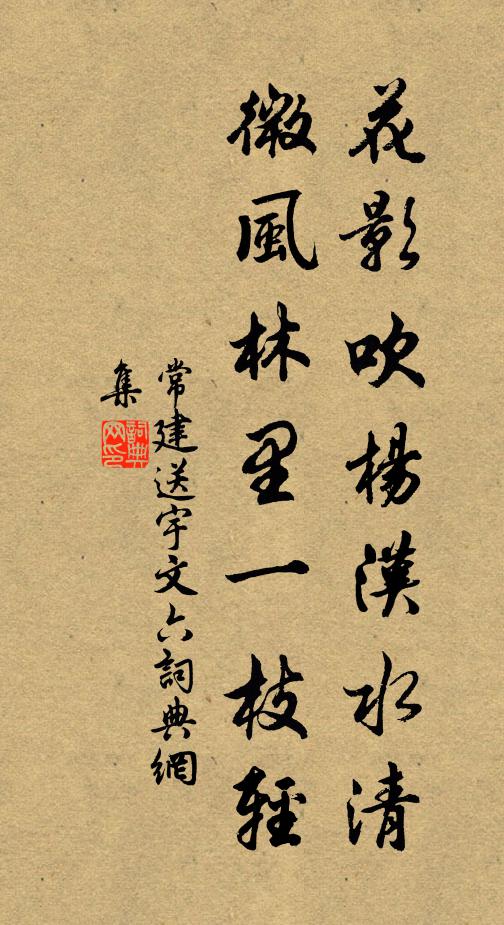 花影吹楊漢水清
微風林里一枝輕
常建送宇文六詞典網
集
詞典網印